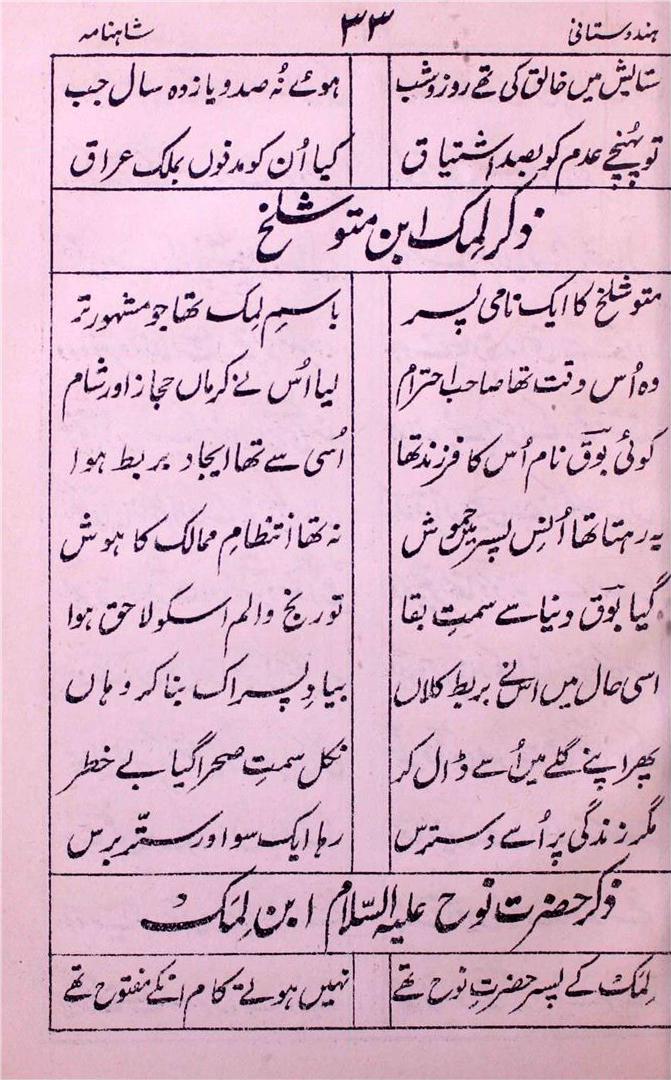 ہندوستانی ۳۳ شاہنامہ
ستایش میں خالق کی تھے روز و شب ہوئے نُہ صد و یازدہ سال جب
تو پہُنچے عدم کو بصد اشتیاق کیا اُن کو مدفوں بملک عراق
ذکر لِمک ابن متوشلخ
متوشلخ کا ایک نامی پسر باسمِ لِمک تھا جو مشہور تر
وہ اُس وقت تھا صاحب احترام لیا اُس نے کرماں حجاز اور شام
کوئی بوق نام اُس کا فرزند تھا اُسی سے تھا ایجاد بربط ہوا
یہ رہتا تھا اُنسِ پسر میں خموش نہ تھا انتظامِ ممالک کا ہوش
گیا بوق دنیا سے سمتِ بقا تو رنج و الم اسکو لاحق ہوا
اسی حال میں اسنے بربط کلاں بیادِ پسر اک بنا کر وہاں
پھر اپنے گلے میں اُسے ڈال کر نکل سمتِ صحرا گیا بے خطر
مگر زندگی پر اُسے دسترس رہا ایک سو اور ستّر برس
ذکر حضرت نوح علیہ السّلام ابن لِمَک
لِمَک کے پسر حضرتِ نوح تھے نہیں ہوتے کام انکے مفتوح تھے